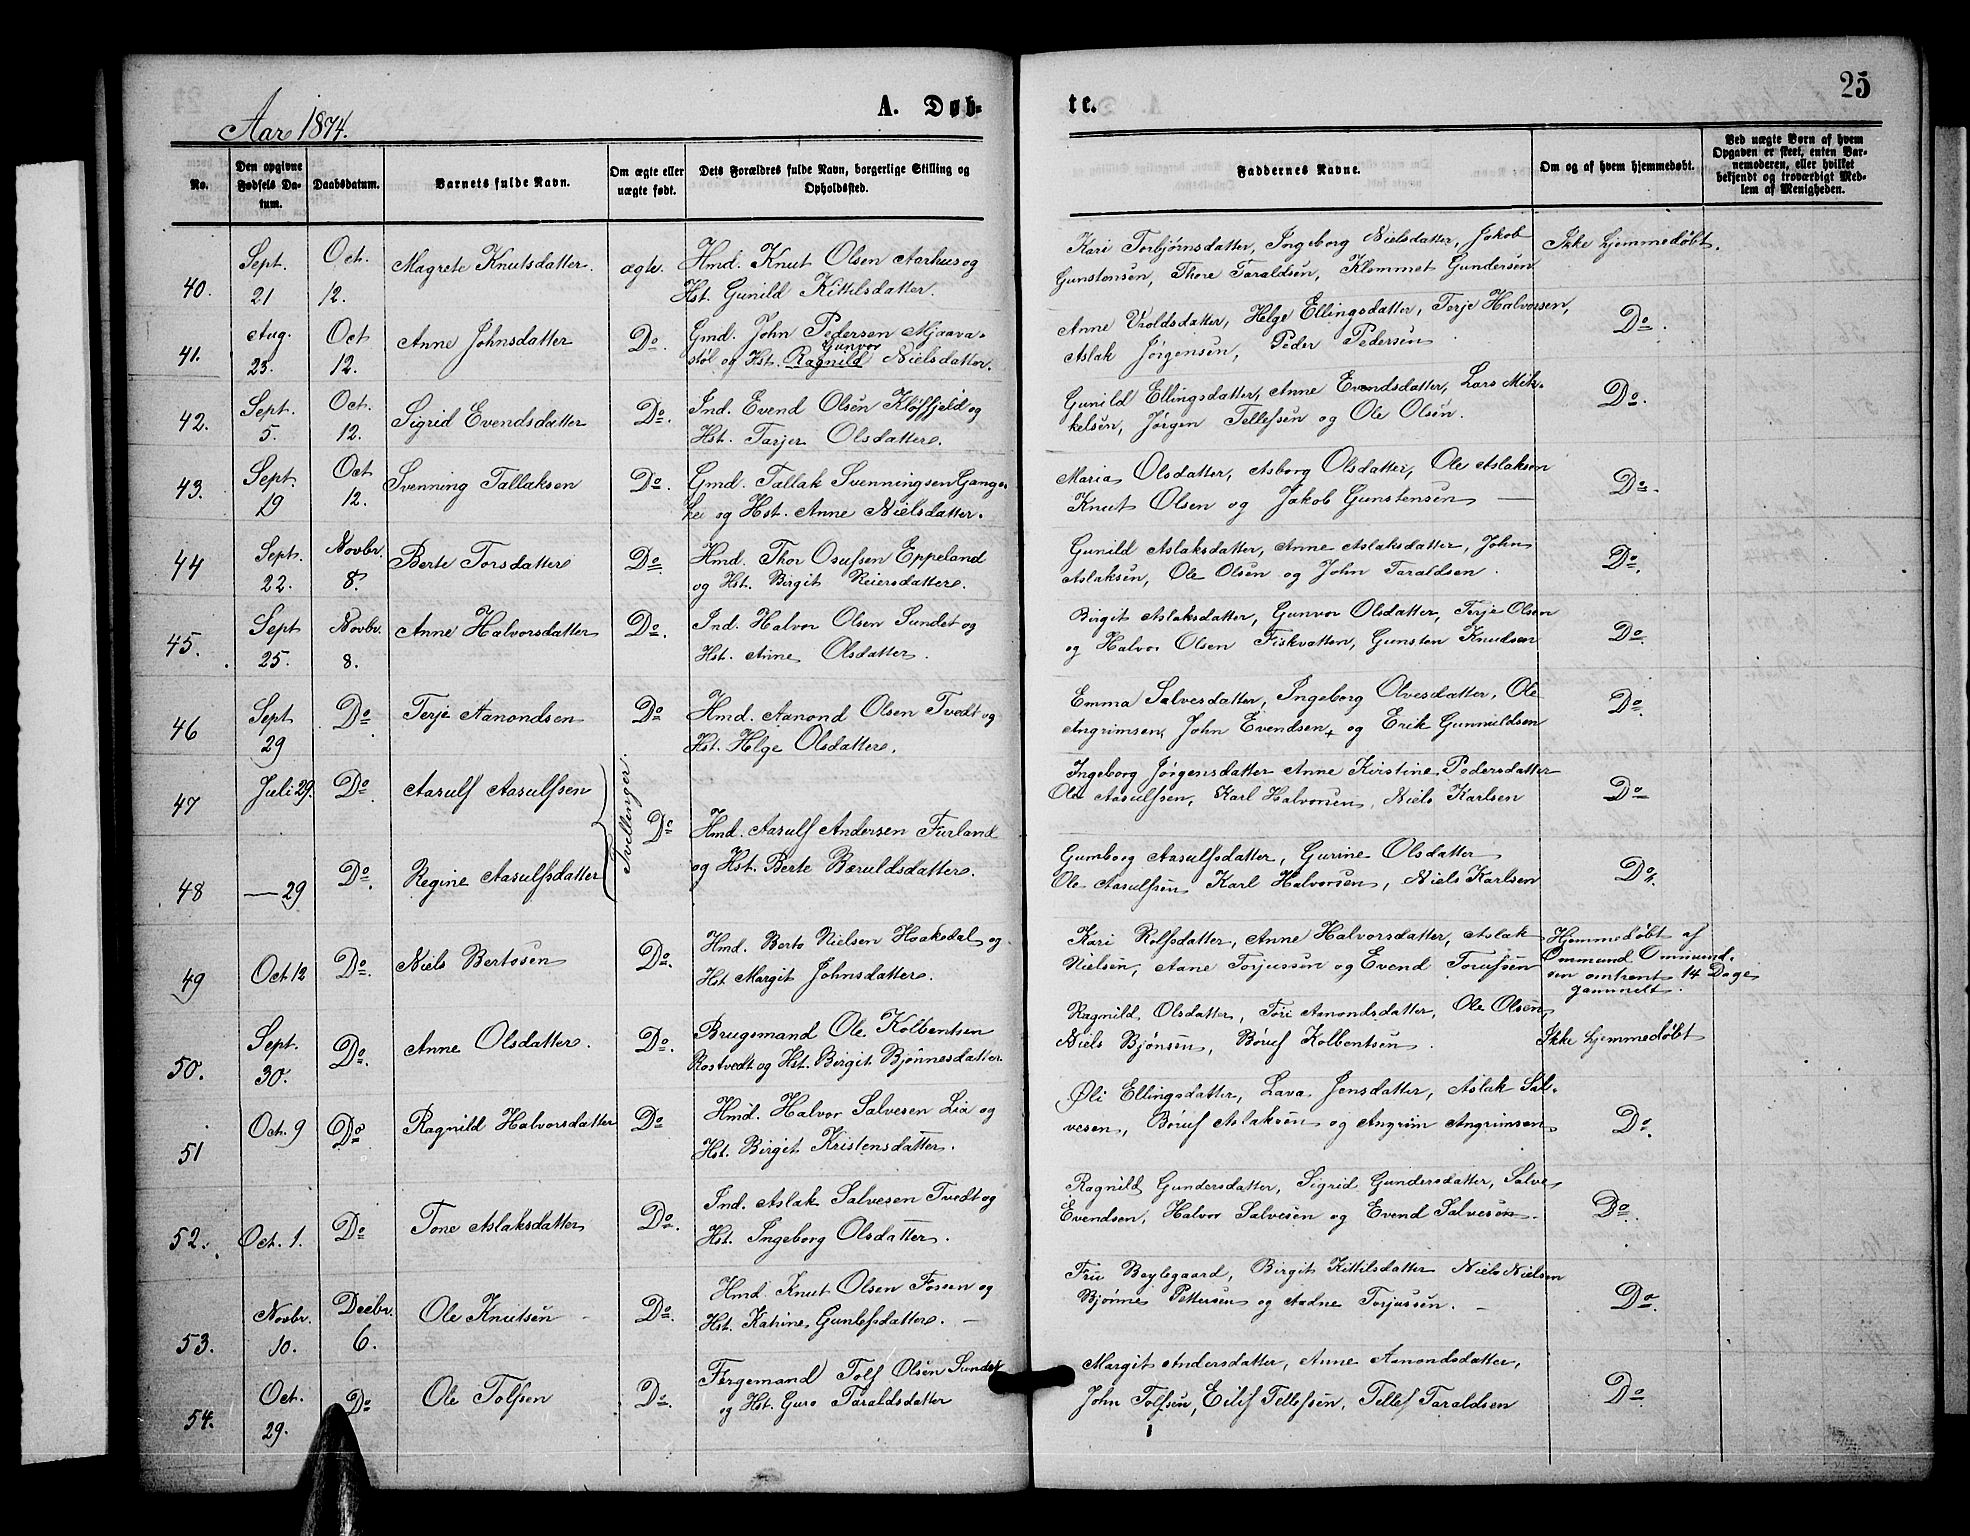 25
Aar 1874.
A. Døb-
te.
No.
Den opgivne Fødsels Da-tum.
Daabsdatum.
Barnets fulde Navn.
Om ægte eller uægte født.
Dets Forældres fulde Navn, borgerlige Stilling og Opholdssted.
Faddernes Navne.
Om og af hvem hjemmedøbt.
Ved uægte Børn af hvem Opgaven er skeet, enten Bar-nemoderen, eller hvilket bekjendt og troværdigt Med-lem af Menigheden.
40. Sept. 21 Oct. 12. Magrete Knutsdatter. ægte.
Hmd. Knut Olsen Aarhus og
Hst. Gunild Kittilsdatter.
Kari Torbjørnsdatter, Ingeborg Nielsdatter, Jakob
Gunstensen, Thore Taraldsen, Klemmet Gundersen
Ikke hjemmedøbt.
41. Aug. 23. Oct 12. Anne Johnsdatter Do.
Gmd. John Pedersen Mjaava-
Gunvor
støl og Hst. Ragnild Nielsdatter.
Anne Vroldsdatter, Helge Ellingsdatter, Terje Halvorsen,
Aslak Jørgensen, Peder Pedersen
Do.
42. Sept. 5. Oct. 12. Sigrid Evendsdatter Do.
Ind. Evend Olsen Kløffjeld og
Hst. Tarjer Olsdatter.
Gunild Ellingsdatter, Anne Evendsdatter, Lars Mik-
kelsen, Jørgen Tellefsen og Ole Olsen.
Do.
43. Sept. 19 Oct 12. Svenning Tallaksen Do.
Gmd. Tallak Svenningsen Gange-
lei og Hst. Anne Nielsdatter.
Maria Olsdatter, Asborg Olsdatter, Ole Aslaksen
Knut Olsen og Jakob Gunstensen —
Do.
44 Sept. 22. Novbr. 8. Berte Torsdatter Do.
Hmd. Thor Osufsen Eppeland
og Hst. Birgit Reiersdatter.
Gunild Aslaksdatter, Anne Aslaksdatter, John
Aslaksen, Ole Olsen og John Taraldsen.
Do.
45. Sept 25. Novbr. 8. Anne Halvorsdatter Do.
Ind. Halvor Olsen Sundet og
Hst. Anne Olsdatter.
Birgit Aslaksdatter, Gunvor Olsdatter, Terje Olsen
og Halvor Olsen Fiskvatten, Gunsten Knudsen
Do.
46 Sept 29 Do Terje Aanondsen Do
Hmd. Aanond Olsen Tvedt og
Hst. Helge Olsdatter.
Emma Salvesdatter, Ingeborg Olvesdatter, Ole
Angrimsen, John Evendsen, og Erik Gunnuldsen
Do
47 Juli 29. Do. Aasulf Aasulfsen
Tvellinger.
Do
Hmd. Aasulf Andersen Furland
og Hst. Berte Bæruldsdatter.
Ingeborg Jørgensdatter Anne Kirstine Pedersdatter
Ole Aasulfsen, Karl Halvorsen, Niels Karlsen
Do
48 — 29 Do. Regine Aasulfsdatter
Gumborg Aasulfsdatter, Gurine Olsdatter
Ole Aasulfsen Karl Halvorsen, Niels Karlsen
Do.
49 Oct 12 Do. Niels Bertosen Do.
Hmd. Berto Nielsen Haakedal og
Hst Margit Johnsdatter.
Kari Rolfsdatter, Anne Halvorsdatter, Aslak
Nielsen, Aane Torjussen og Evend Torufsen
Hjemmedøbt af
Ommund Ommund-
sen omtrent 14 Dage
gammelt.
50. Sept. 30. Do. Anne Olsdatter. Do.
Brugsmand Ole Kolbentsen
Rostvedt og Hst. Birgit Bjønnesdatter
Ragnild Olsdatter, Tori Aanondsdatter, Ole Olsen
Niels Bjønsen, Børuf Kolbentsen.
Ikke hjemmedøbt
51 Oct. 9 Do Ragnild Halvorsdatter Do
Hmd. Halvor Salvesen Lia og
Hst. Birgit Kristensdatter.
Øli Ellingsdatter, Lava Jensdatter, Aslak Sal-
vesen, Børuf Aslaksen og Angrim Angrimsen
Do.
52. Oct. 1. Do Tone Aslaksdatter Do.
Ind. Aslak Salvesen Tvedt og
Hst. Ingeborg Olsdatter.
Ragnild Gundersdatter, Sigrid Gundersdatter, Salve
Evendsen, Halvor Salvesen og Evend Salvesen.
Do.
53. Novbr. 10. Decbr. 6. Ole Knutsen Do.
Hmd Knut Olsen Fossen og
Hst. Katrine Gunlefsdatter. —
Fru Beylegaard, Birgit Kittilsdatter Niels Nielsen
Bjønne Pettersen og Aadne Torjussen. —
Do.
54. Oct. 29. Do Ole Tolfsen Do.
Færgemand Tolf Olsen Sundet
og Hst. Guro Taraldsdatter
Margit Andersdatter, Anne Aanondsdatter,
John Tolfsen, Eilif Tellefsen, Tellef Taraldsen
Do